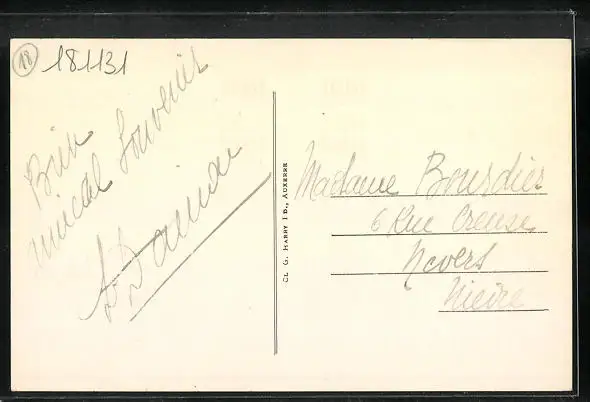 18
181131
Bien
amical Souvenir
Damien
CL. G. HARRY ID., AUXERRE
Madame Bourdier
6 Rue Creuse
Nevers
Nièvre